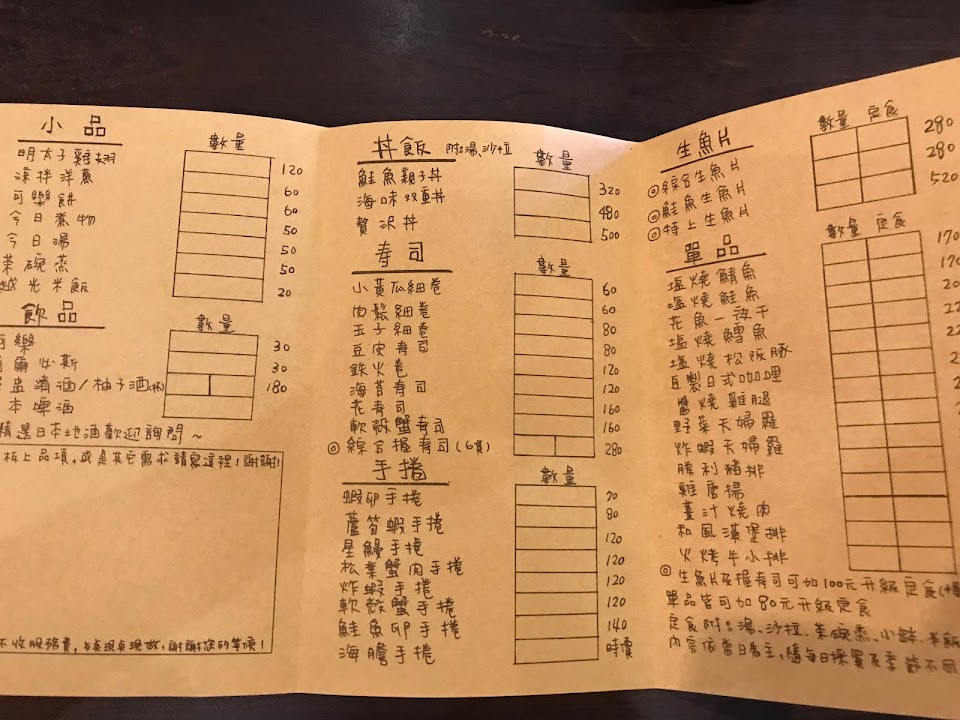 小品
數量
明太子雞翅 120
涼拌洋蔥 60
可樂餅 60
今日煮物 50
今日湯 50
茶碗蒸 50
越光米飯 20
飲品
數量
可樂 30
爾必斯 30
清酒/柚子酒(杯) 180
本啤酒
精選日本地酒歡迎詢問~
板上品項,或是其它需求請寫這裡!謝謝!
不收服務費,點現做,謝謝您的等候!
丼飯 附:湯、沙拉
數量
鮭魚親子丼 320
海味双重丼 480
贅沢丼 500
寿司
數量
小黃瓜細卷 60
肉鬆細卷 60
玉子細卷 80
豆皮寿司 80
鉄火卷 120
海苔寿司 120
花寿司 160
軟殼蟹寿司 160
◎綜合握寿司(6貫) 280
手捲
數量
蝦卵手捲 70
蘆筍蝦手捲 80
星鰻手捲 120
松葉蟹肉手捲 120
炸蝦手捲 120
軟殼蟹手捲 120
鮭魚卵手捲 140
海膽手捲 時價
生魚片
數量 定食
◎綜合生魚片 280
◎鮭魚生魚片 280
◎特上生魚片 520
單品
數量 定食
塩燒鯖魚 170
塩燒鮭魚 170
花魚一夜干
塩燒鱈魚
塩燒松阪豚
自製日式咖哩
醬燒雞腿
野菜天婦羅
炸蝦天婦羅
勝利豬排
雞唐揚
薑汁燒肉
和風漢堡排
火烤牛小排
◎生魚片及握寿司可加100元升級定食
單品皆可加80元升級定食
定食附:湯、沙拉、茶碗蒸、小缽、米飯
內容依當日為主,隨每日採買及季節不同